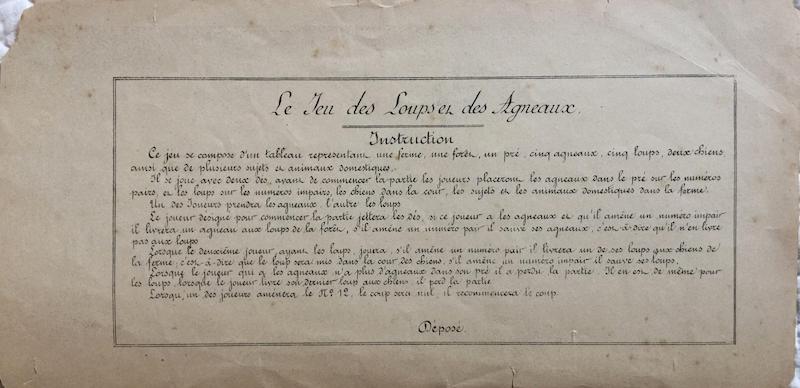 Le Jeu des Loups et des Agneaux.
Instruction
Ce jeu se compose d'un tableau representant une ferme, une forêt, un pré, cinq agneaux, cinq loups, deux chiens,
ainsi que de plusieurs sujets et animaux domestiques.
Il se joue avec deux dés, avant de commencer la partie les joueurs placeront les agneaux dans le pré sur les numéros
pairs, et les loup sur les numéros impairs, les chiens dans la cour, les sujets et les animaux domestiques dans la ferme.
Un des Joueurs prendra les agneaux, l'autre les loups
Le joueur designé pour commencer la partie jettera les dés, si ce joueur a les agneaux et qu'il amène un numéro impair
il livrera un agneau aux loups de la forêt, s'il amène un numéro pair il sauve ses agneaux, c'est-à-dire qu'il n'en livre
pas aux loups
Lorsque le deuxième joueur, ayant les loups, jouera, s'il amène un numéro pair il livrera un de ses loups aux chiens de
la ferme, c'est-à-dire que le loup sera mis dans la cour des chiens, s'il amène un numéro impair il sauve ses loups.
Lorsque le joueur qui a les agneaux n'a plus d'agneaux dans son pré il a perdu la partie. Il en est de même pour
les loups, lorsque le joueur livre son dernier loup aux chiens, il perd la partie
Lorsqu'un des joueurs amènera le Nº 12, le coup sera nul, il recommencera le coup.
Déposé.